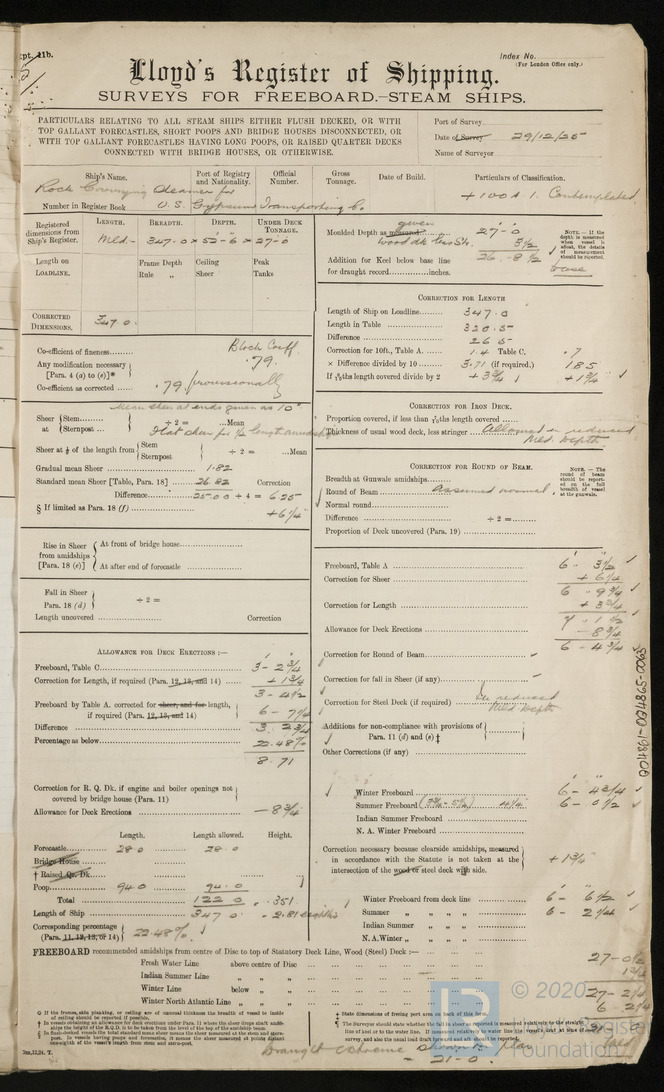 Rpt. 11b.
Index No.
(For London Office only.)
Lloyd's Register of Shipping.
SURVEYS FOR FREEBOARD.—STEAM SHIPS.
PARTICULARS RELATING TO ALL STEAM SHIPS EITHER FLUSH DECKED, OR WITH
TOP GALLANT FORECASTLES, SHORT POOPS AND BRIDGE HOUSES DISCONNECTED, OR
WITH TOP GALLANT FORECASTLES HAVING LONG POOPS, OR RAISED QUARTER DECKS
CONNECTED WITH BRIDGE HOUSES, OR OTHERWISE.
Port of Survey
Date of Survey 29/12/25
Name of Surveyor
Ship's Name. Port of Registry and Nationality. Official Number. Gross Tonnage. Date of Build. Particulars of Classification.
Rock Carrying Steamer for
+100 A 1. Contemplated
Number in Register Book U.S. Gypsum Transporting Co.
Registered dimensions from Ship's Register.
LENGTH. BREADTH. DEPTH. UNDER DECK TONNAGE.
Mld - 347.0 x 52-6 x 27-0
Length on LOADLINE.
Frame Depth Ceiling Peak
Rule „ Sheer Tanks
CORRECTED DIMENSIONS. 347.0
Moulded Depth as measured given 27-0
Wood dk less Str. 3½
26-8½
Addition for Keel below base line
for draught record inches. base
NOTE.—If the depth is measured when vessel is afloat, the details of measurement should be reported.
Co-efficient of fineness Block Coeff. .79
Any modification necessary
[Para. 4 (a) to (e)]*
Co-efficient as corrected .79 provisionally
Mean sheer at ends given as 10"
Sheer at Stem Sternpost ÷ 2 = Mean
Flat sheer for ½ length amidships
Sheer at ⅛ of the length from Stem Sternpost ÷ 2 = Mean
Gradual mean Sheer 1.82
Standard mean Sheer [Table, Para. 18] 26.82 Correction
Difference 25.00 ÷ 4 = 6.25
§ If limited as Para. 18 (f) +6¼
Rise in Sheer from amidships [Para. 18 (e)]
At front of bridge house
At after end of forecastle
Fall in Sheer Para. 18 (d) ÷ 2 =
Length uncovered Correction
ALLOWANCE FOR DECK ERECTIONS:—
Freeboard, Table C 3-2¾
Correction for Length, if required (Para. 12, 13, and 14) +1¾
3-4½
Freeboard by Table A. corrected for sheer, and for length,
if required (Para. 12, 13, and 14) 6-7¼
Difference 3.2¾
Percentage as below 22.48%
8.71
Correction for R. Q. Dk. if engine and boiler openings not
covered by bridge house (Para. 11)
Allowance for Deck Erections -8¾
Length. Length allowed. Height.
Forecastle 28.0 28.0
Bridge House
† Raised Qr. Dk.
Poop 94.0 94.0
Total 122.0 .351
Length of Ship 347.0 = 2.81 eighths
Corresponding percentage
(Para. 11, 12, 13, or 14) 22.48%
CORRECTION FOR LENGTH
Length of Ship on Loadline 347.0
Length in Table 320.5
Difference 26.5
Correction for 10ft., Table A. 1.4 Table C. .7
× Difference divided by 10 3.71 (if required.) 1.85
If 6/10ths length covered divide by 2 +3¾ +1¾
CORRECTION FOR IRON DECK.
Proportion covered, if less than 7/10ths length covered
Thickness of usual wood deck, less stringer Allowed in reduced
Mld. Depth
CORRECTION FOR ROUND OF BEAM.
Breadth at Gunwale amidships
Round of Beam Assumed normal.
Normal round
Difference ÷ 2 =
Proportion of Deck uncovered (Para. 19)
NOTE.—The round of beam should be reported on the full breadth of vessel at the gunwale.
Freeboard, Table A 6-3½
Correction for Sheer +6¼
6 9¾
Correction for Length +3¾
7-1½
Allowance for Deck Erections -8¾
6-4¾
Correction for Round of Beam
Correction for fall in Sheer (if any)
Correction for Steel Deck (if required) In reduced
Mld Depth
Additions for non-compliance with provisions of
Para. 11 (d) and (e) ‡
Other Corrections (if any)
Winter Freeboard 6-4¾
Summer Freeboard 4¼ 6-0½
Indian Summer Freeboard
N. A. Winter Freeboard
Correction necessary because clearside amidships, measured
in accordance with the Statute is not taken at the
intersection of the wood or steel deck with side. +1¾
Winter Freeboard from deck line 6-6½
Summer „ „ „ „ 6-2¼
Indian Summer „ „ „
N. A. Winter „ „ „ „
FREEBOARD recommended amidships from centre of Disc to top of Statutory Deck Line, Wood (Steel) Deck:—
Fresh Water Line above centre of Disc
Indian Summer Line „ „
Winter Line below „
Winter North Atlantic Line „ „
27-0½
1¾
27-2¼
6-2¼
21-0
Draught extreme shown on plan
= 21-0.
LLPF0198-0397-198400-0065
© 2020
Lloyd's Register
Foundation